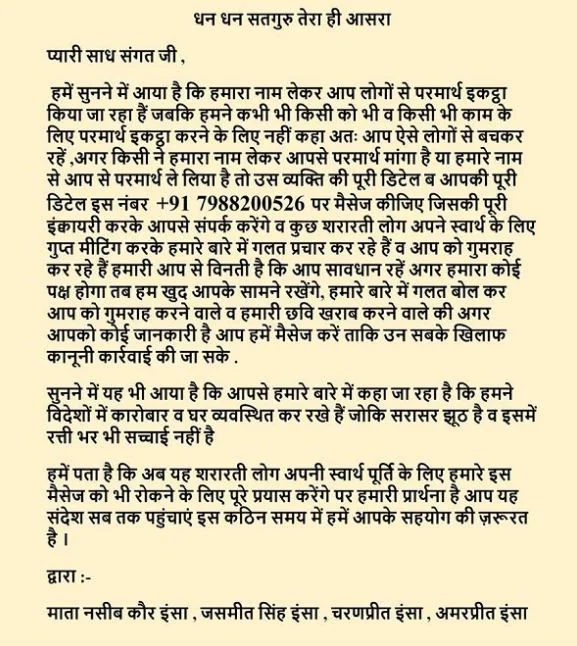 धन धन सतगुरु तेरा ही आसरा
प्यारी साध संगत जी ,
हमें सुनने में आया है कि हमारा नाम लेकर आप लोगों से परमार्थ इकट्ठा
किया जा रहा हैं जबकि हमने कभी भी किसी को भी व किसी भी काम के
लिए परमार्थ इकट्ठा करने के लिए नहीं कहा अतः आप ऐसे लोगों से बचकर
रहें ,अगर किसी ने हमारा नाम लेकर आपसे परमार्थ मांगा है या हमारे नाम
से आप से परमार्थ ले लिया है तो उस व्यक्ति की पूरी डिटेल ब आपकी पूरी
डिटेल इस नंबर +91 7988200526 पर मैसेज कीजिए जिसकी पूरी
इंक्वायरी करके आपसे संपर्क करेंगे व कुछ शरारती लोग अपने स्वार्थ के लिए
गुप्त मीटिंग करके हमारे बारे में गलत प्रचार कर रहे हैं व आप को गुमराह
कर रहे हैं हमारी आप से विनती है कि आप सावधान रहें अगर हमारा कोई
पक्ष होगा तब हम खुद आपके सामने रखेंगे, हमारे बारे में गलत बोल कर
आप को गुमराह करने वाले व हमारी छवि खराब करने वाले की अगर
आपको कोई जानकारी है आप हमें मैसेज करें ताकि उन सबके खिलाफ
कानूनी कार्रवाई की जा सके .
सुनने में यह भी आया है कि आपसे हमारे बारे में कहा जा रहा है कि हमने
विदेशों में कारोबार व घर व्यवस्थित कर रखे हैं जोकि सरासर झूठ है व इसमें
रत्ती भर भी सच्चाई नहीं है
हमें पता है कि अब यह शरारती लोग अपनी स्वार्थ पूर्ति के लिए हमारे इस
मैसेज को भी रोकने के लिए पूरे प्रयास करेंगे पर हमारी प्रार्थना है आप यह
संदेश सब तक पहुंचाएं इस कठिन समय में हमें आपके सहयोग की ज़रूरत
है ।
द्वारा :-
माता नसीब कौर इंसा , जसमीत सिंह इंसा , चरणप्रीत इंसा , अमरप्रीत इंसा